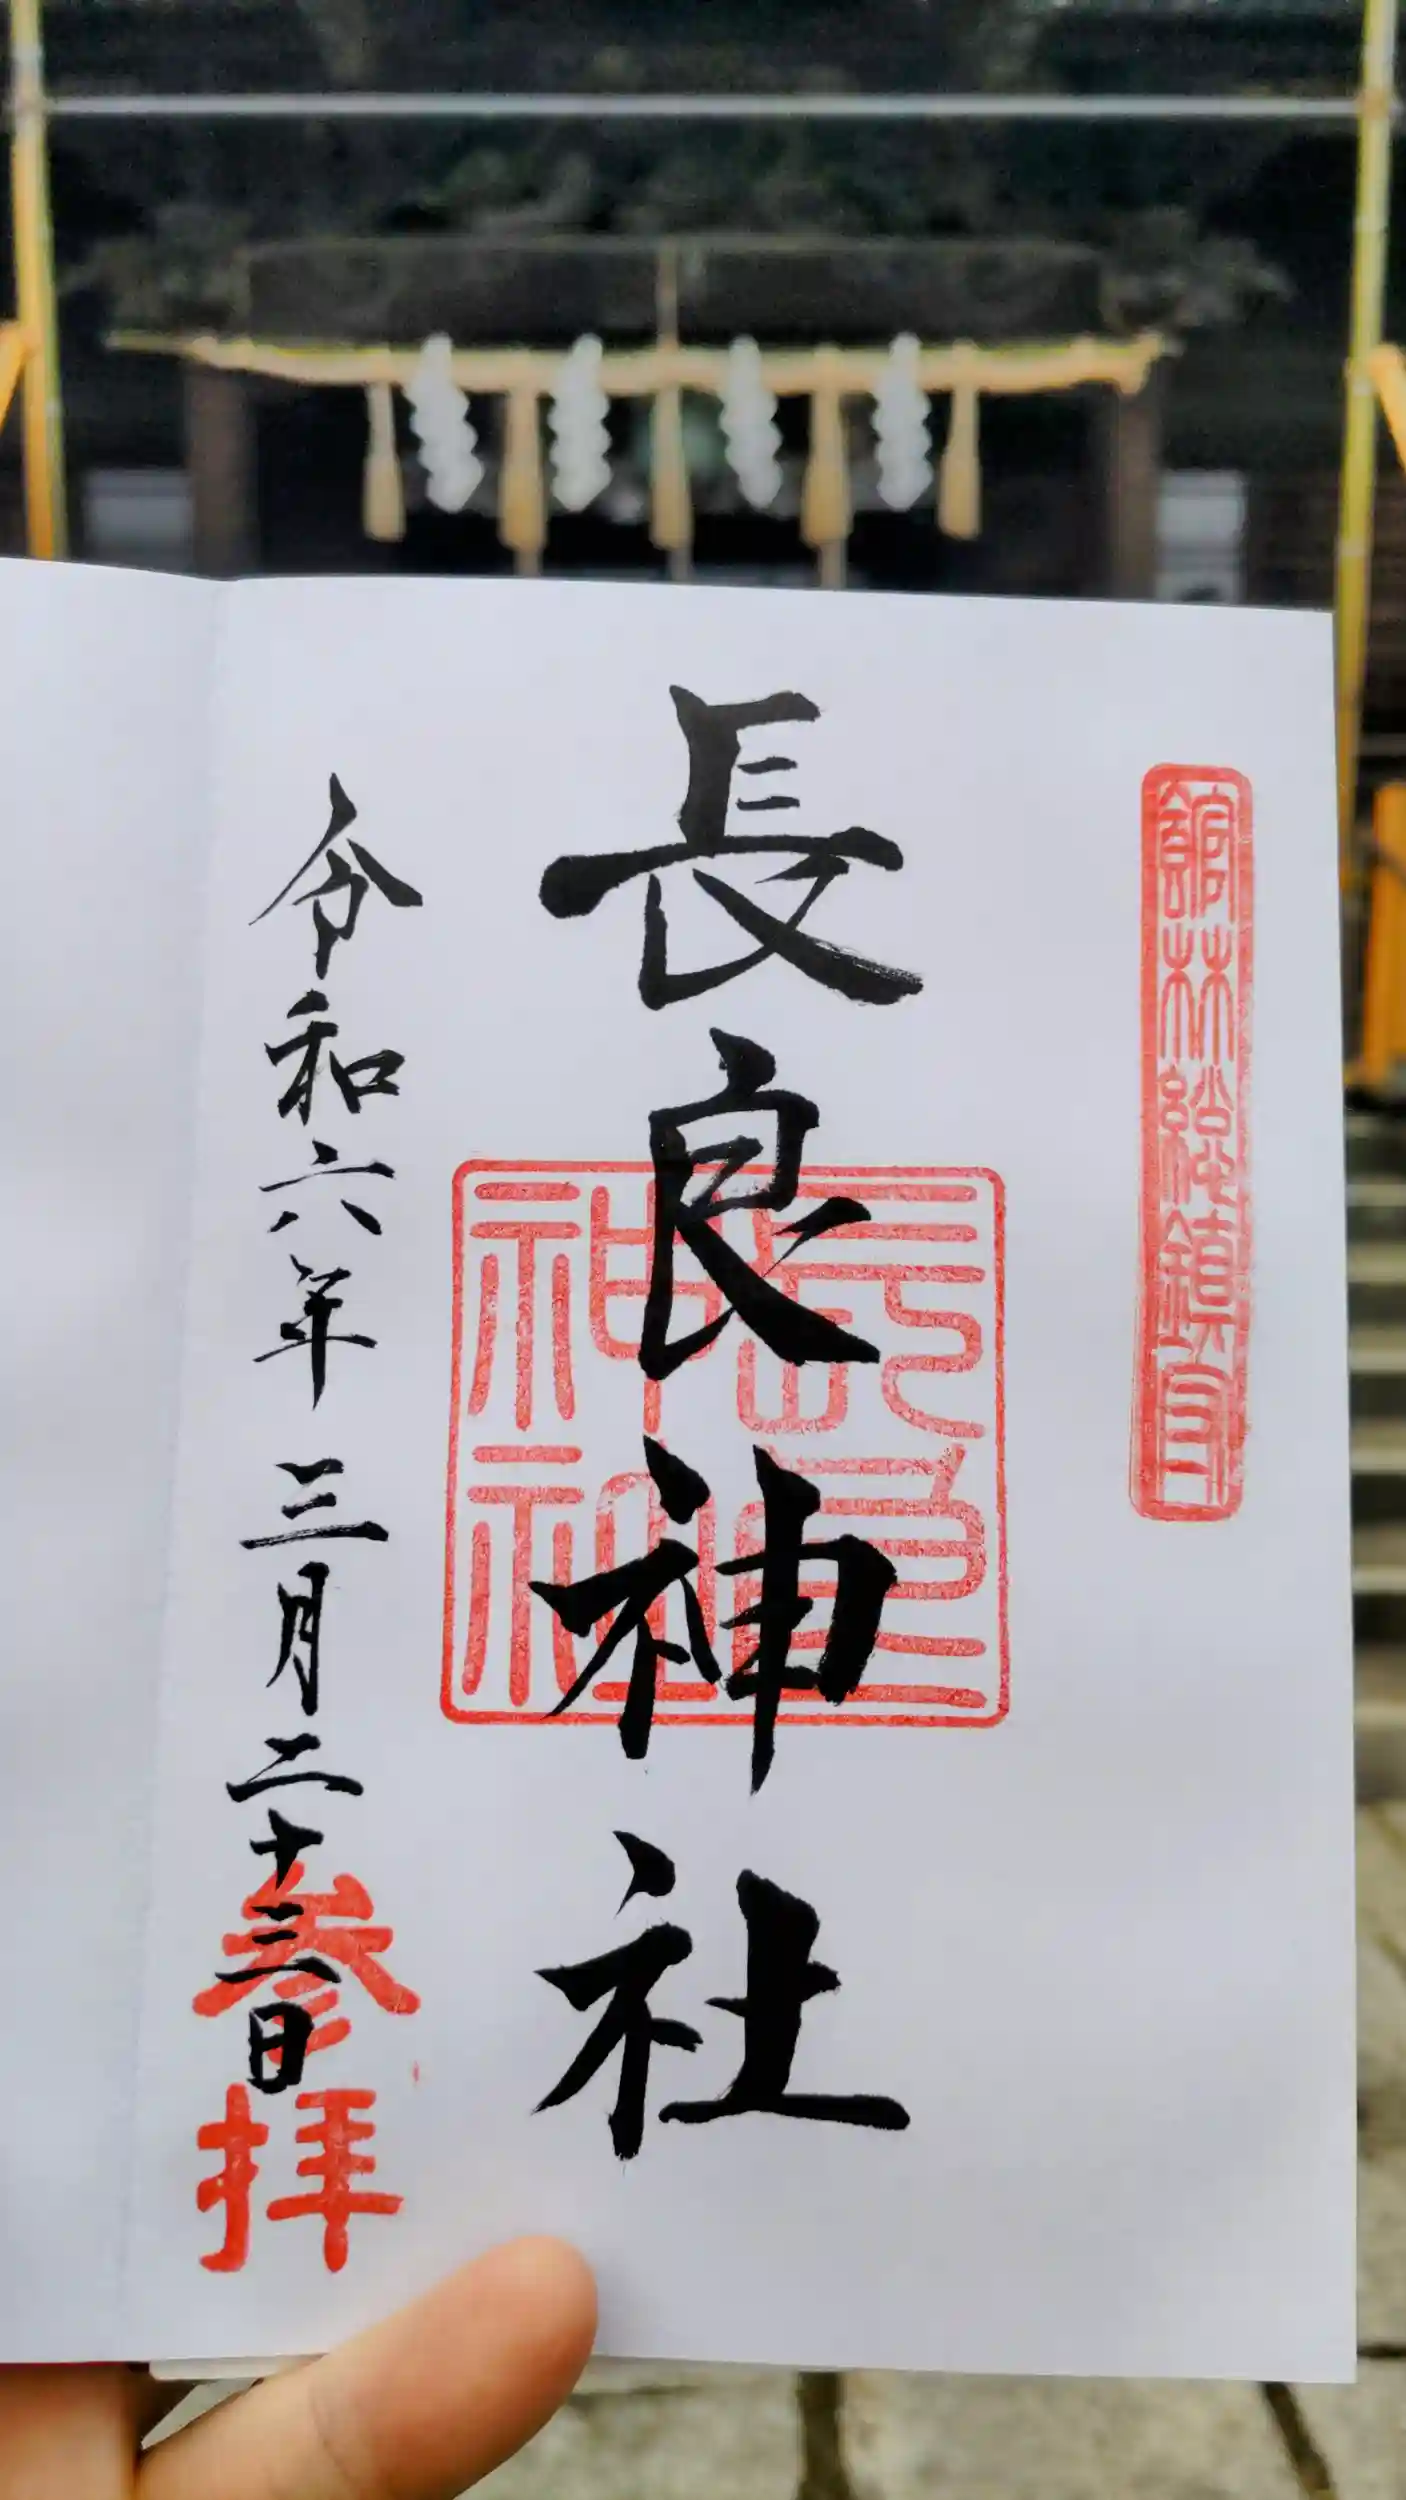 館林総鎮守
長良神社
長良神社
令和六年三月二十三日
参拝